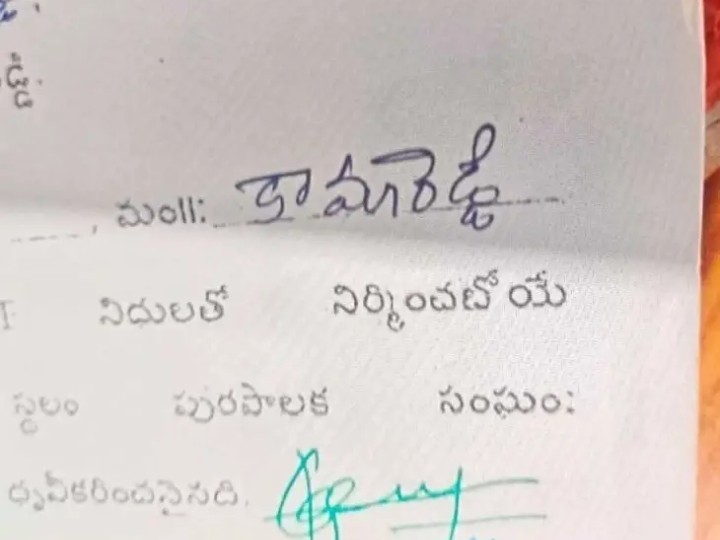 మం॥: కామారెడ్డి
నిధులతో నిర్మించబోయే
స్థలం పురపాలక సంఘం:
ధృవీకరించనైనది.